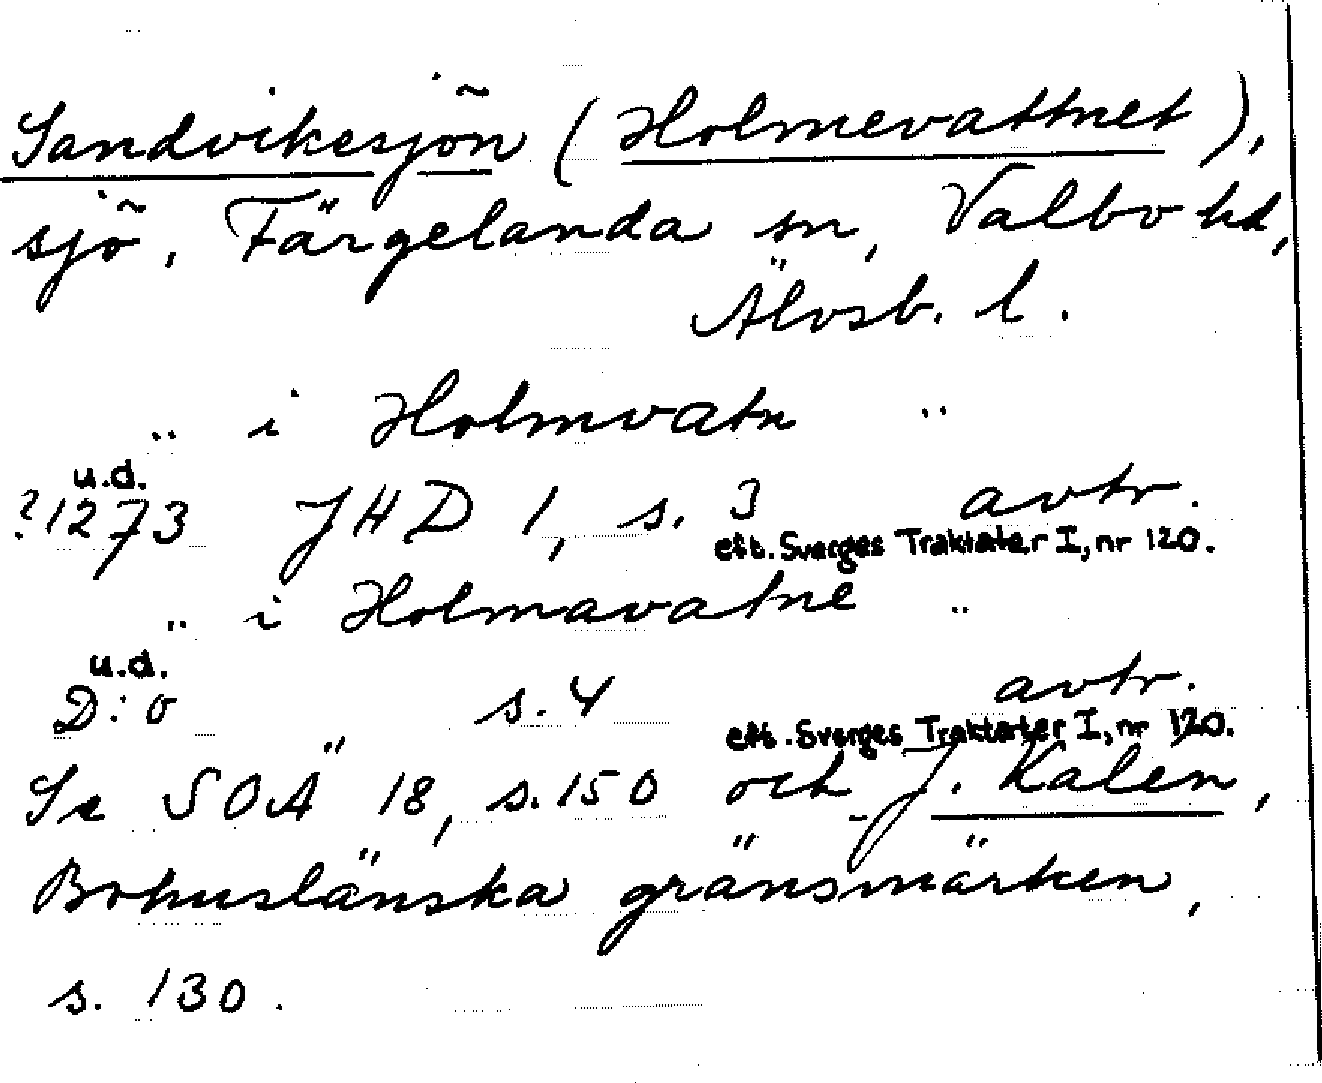 Sandvikesjön (Holmevattnet),
sjö, Färgelanda sn, Valbo hd,
Älvsb. l.
" i Holmvatn "
u.d.
?1273 JHD 1, s. 3 avtr.
eft. Sverges Traktater I, nr 120.
" i Holmavatne "
u.d.
D:o s. 4 avtr.
eft. Sverges Traktater I, nr 120.
Se SOÄ 18, s. 150 och J. Kalén,
Bohuslänska gränsmärken,
s. 130.